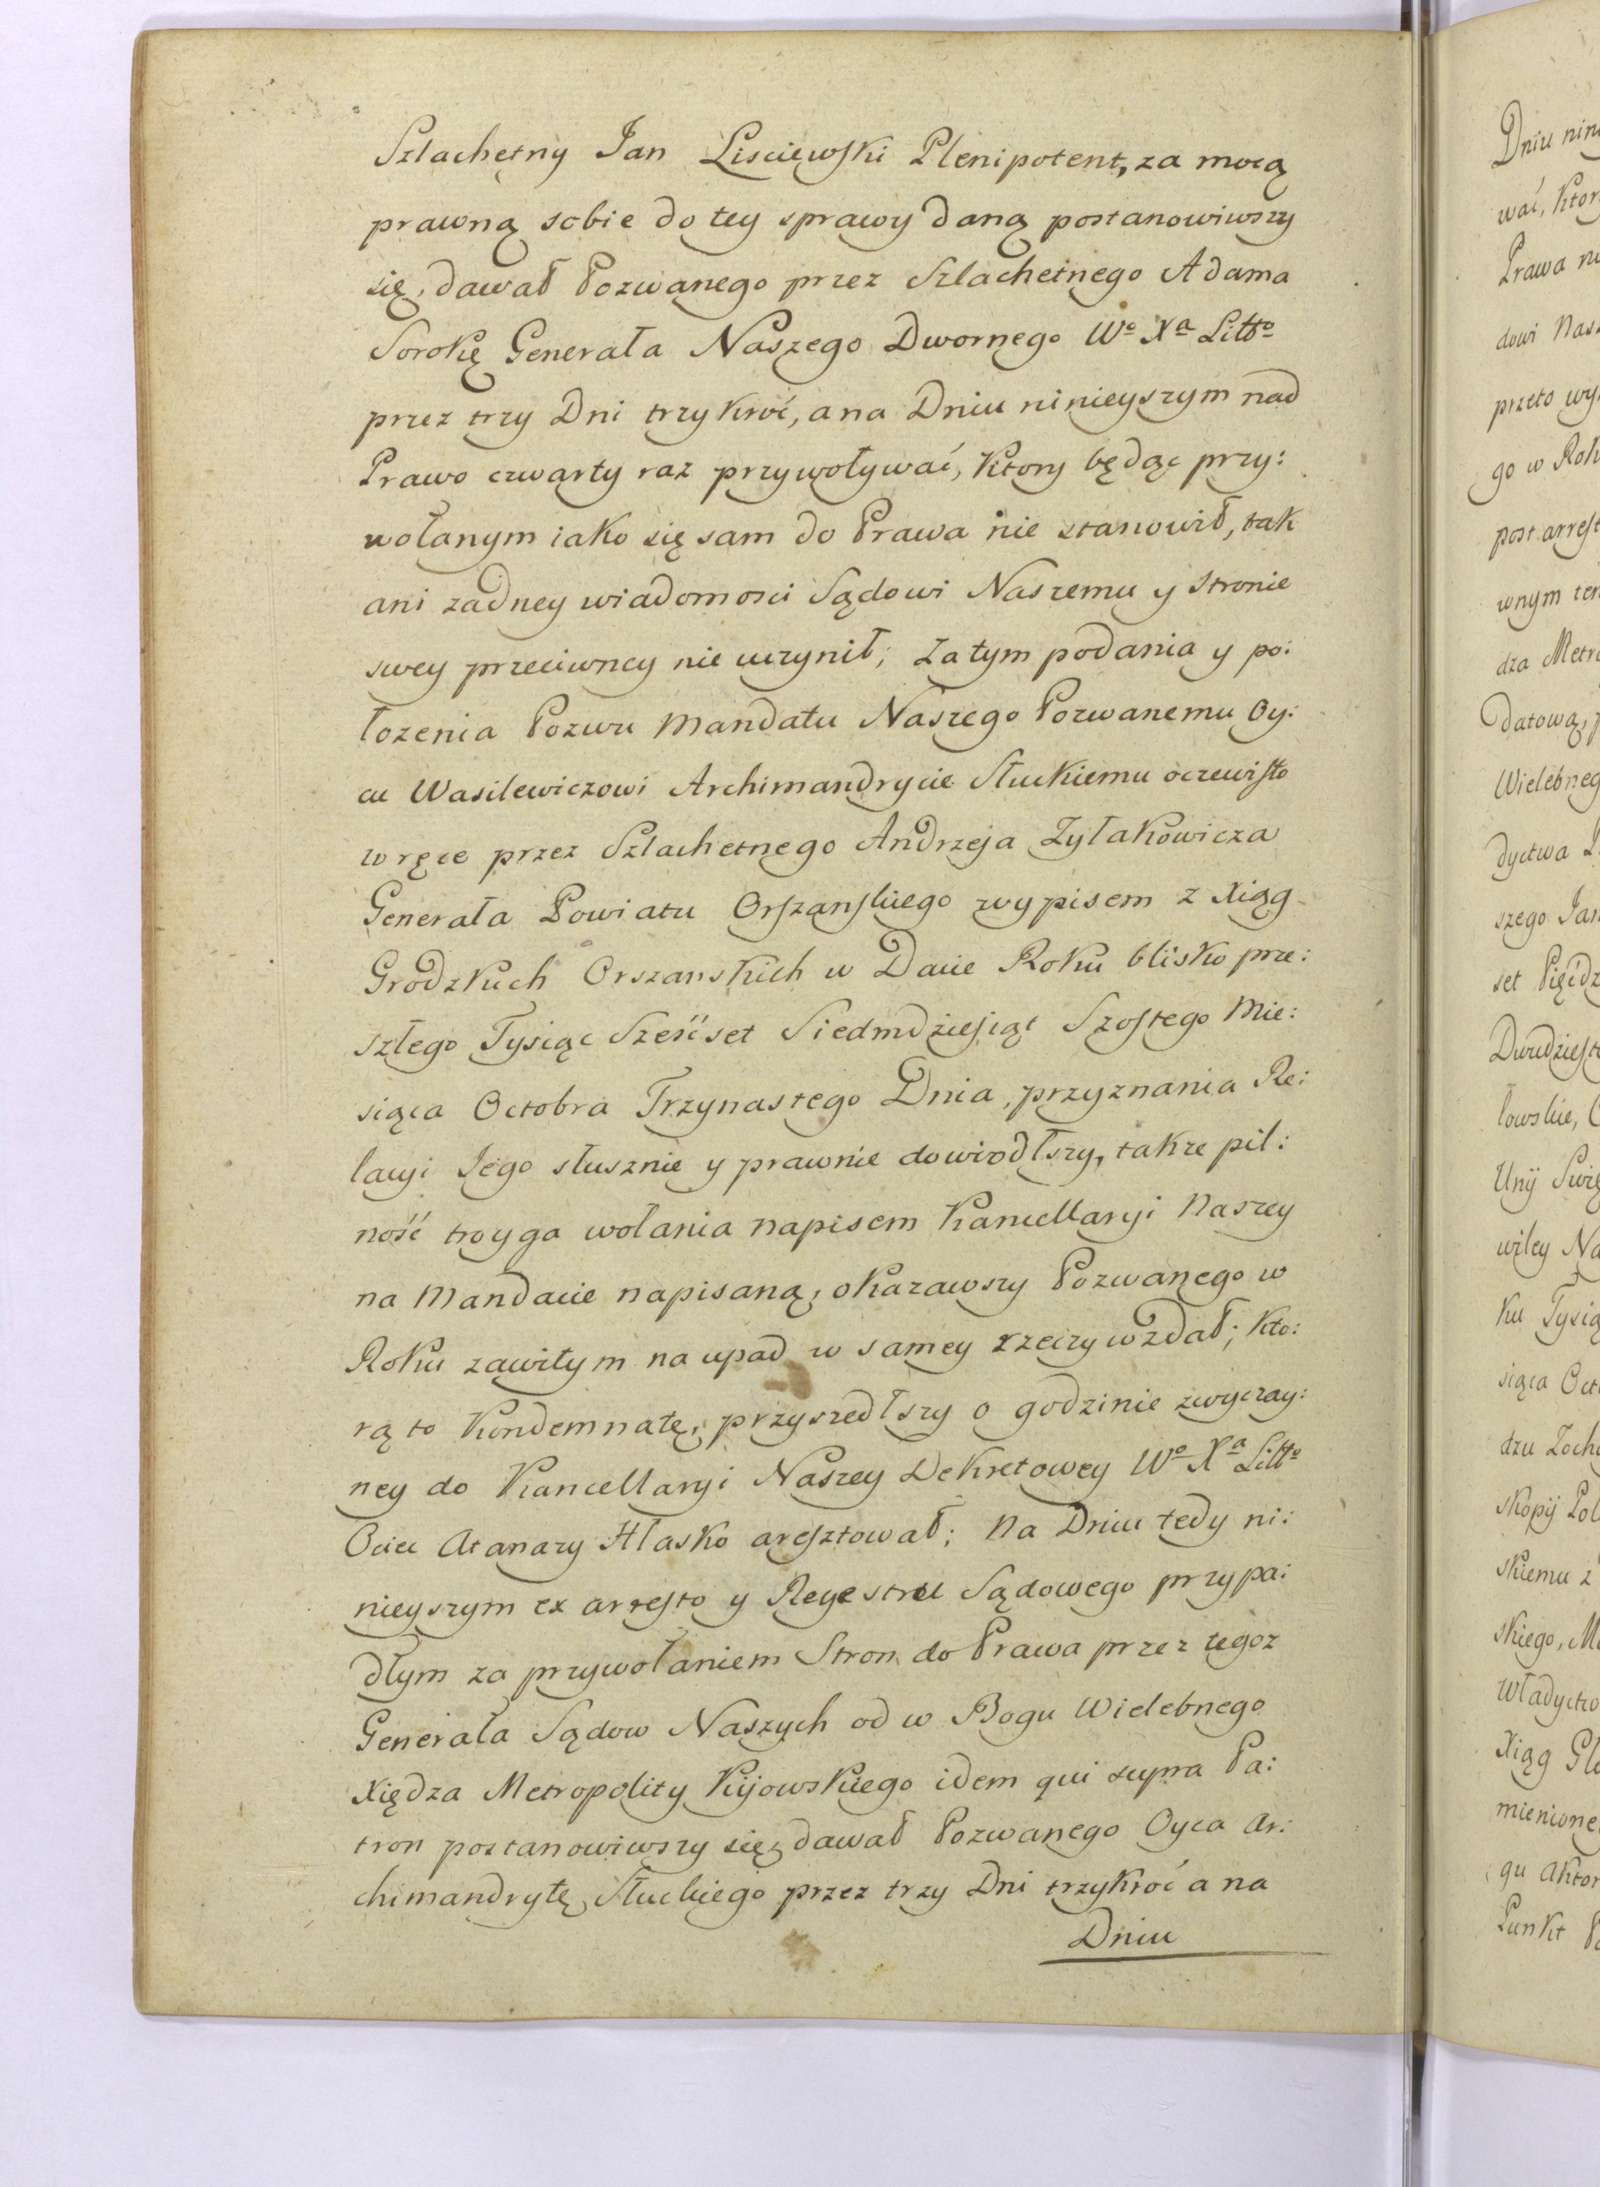 Szlachetny Jan Lisciewski Plenipotent, za mocą
prawną sobie do tey sprawy daną postanowiwszy
się, dawał Pozwanego przez Szlachetnego Adama
Sorokę Generała Naszego Dwornego Wo Xa Litto
przez trzy Dni trzykroć, a na Dniu ninieyszym nad
Prawo czwarty raz przywoływać, Ktory będąc przy:
wołanym iako się sam do Prawa nie stanowił, tak
ani zadney wiadomosci Sądowi Naszemu y Stronie
swey przeciwney nie uczynił; Za tym podania y po:
łozenia Pozwu Mandatu Naszego Pozwanemu Oy:
cu Wasilewiczowi Archimandrycie Słuckiemu oczewisto
w ręce przez Szlachetnego Andrzeja Zyłakowicza
Generała Powiatu Orszanskiego wypisem z Xiąg
Grodzkich Orszanskich w Dacie Roku blisko prze:
szłego Tysiąc Sześćset Siedmdziesiąt Szostego Mie:
siąca Octobra Trzynastego Dnia, przyznania Re:
lacyi Jego słusznie y prawnie dowiodłszy, takze pil:
ność troyga wołania napisem Kancellaryi Naszey
na Mandacie napisaną, okazawszy Pozwanego w
Roku zawitym na upad w samey rzeczy wzdał; kto:
rą to Kondemnatę, przyszedłszy o godzinie zwyczay:
ney do Kancellaryi Naszey Dekretowey Wo Xa Litto
Ociec Atanazy Hłasko aresztował; Na Dniu tedy ni:
nieyszym ex arresto y Regestru Sądowego przypa:
dłym za przywołaniem Stron do Prawa przez tegoz
Generała Sądow Naszych od w Bogu Wielebnego
Xiędza Metropolity Kijowskiego idem qui supra Pa:
tron postanowiwszy się, dawał Pozwanego Oyca Ar:
chimandrytę Słuckiego przez trzy Dni trzykroć a na
Dniu
Dniu
wać, Ktor
Prawa
dowi
przeto
go w
post
wnym
dza
Datową,
Wielebneg
dyctwa
szego
set
Unij
wiley
siąca
skiemu z
skiego,
Xiąg
gu
Punkt